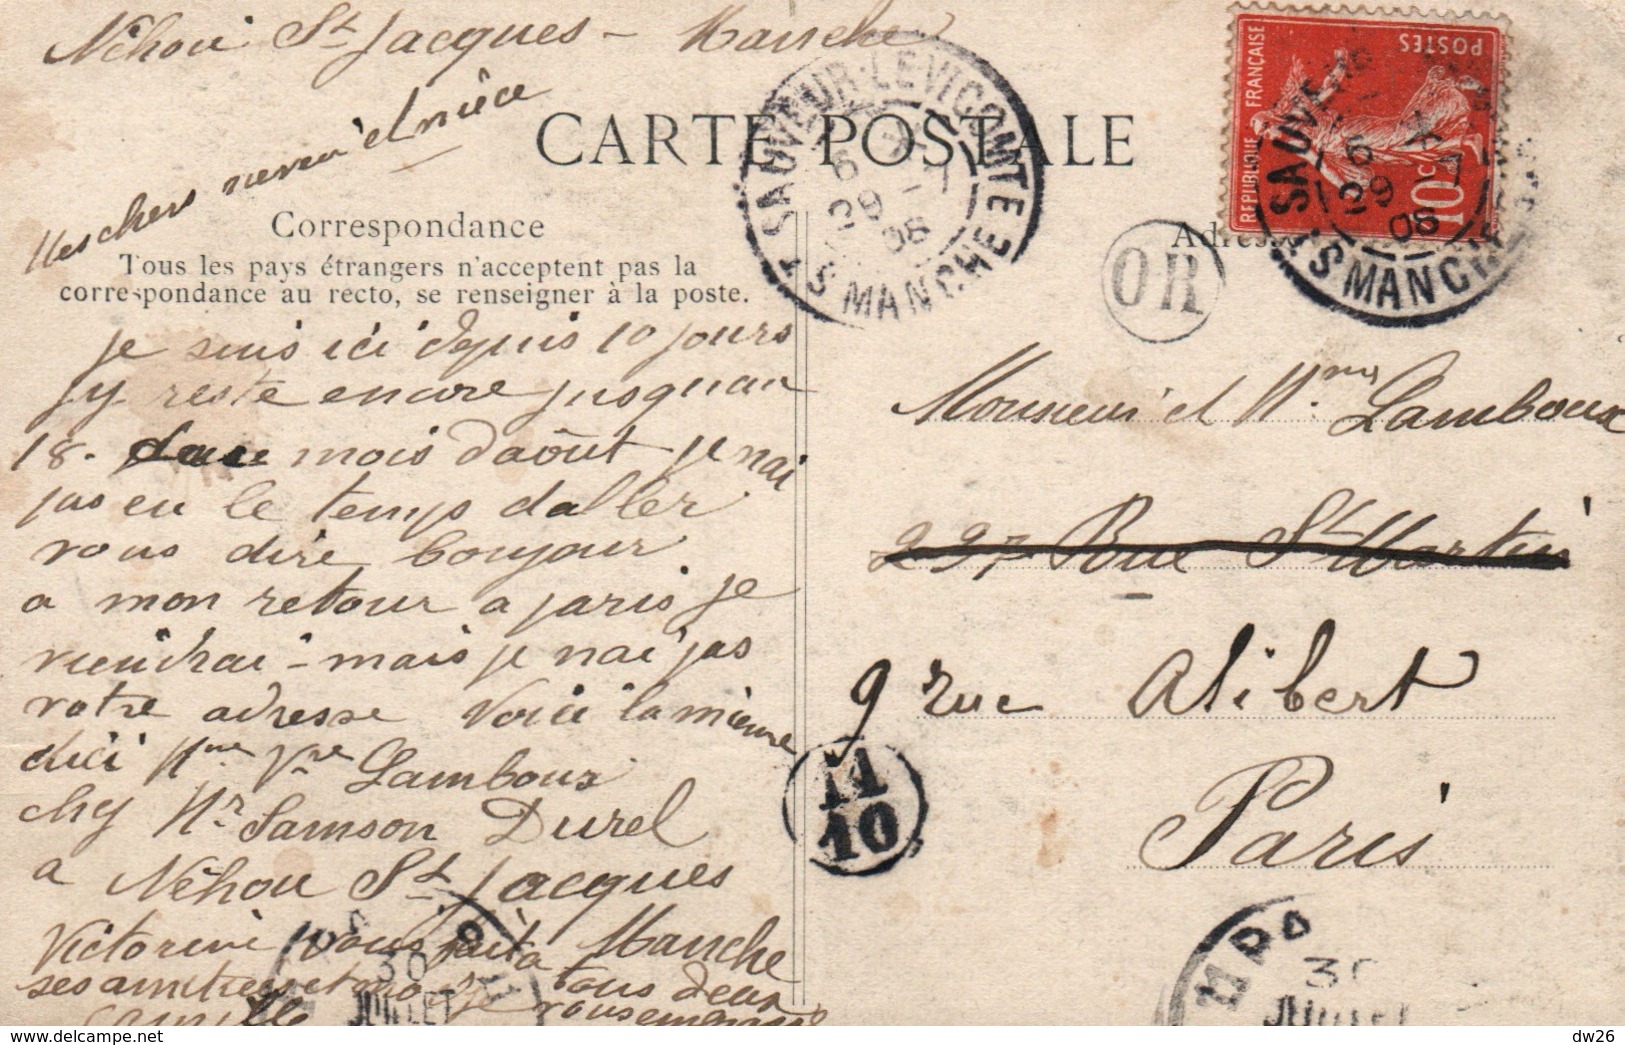 Néhou St Jacques - Manche
Mes chers neveu et nièce
CARTE POSTALE
Correspondance
Tous les pays étrangers n'acceptent pas la
correspondance au recto, se renseigner à la poste.
je suis ici depuis 10 jours
jy reste encore jusquau
18. mois daôut je nai
pas eu le temps daller
vous dire bonjour
a mon retour a paris je
viendrai - mais je nai pas
votre adresse Voici la mienne
dici Mme Vve Lamboux
chez Mr Samson Durel
a Néhou St Jacques
Manche
Victorine vous fait a tous deux
ses amitiées et moi je vous embrasse
Camille
Adresse
Monsieur et Mme Lamboux
227 Rue St Martin
9 rue Alibert
Paris
REPUBLIQUE FRANÇAISE
POSTES
10c
ST SAUVEUR-LE-VICOMTE
6 29 -7 08
MANCHE
ST SAUVEUR
6 29 -7 08
MANCHE
OR
11
10
30
JUILLET
30
JUILLET
dw26